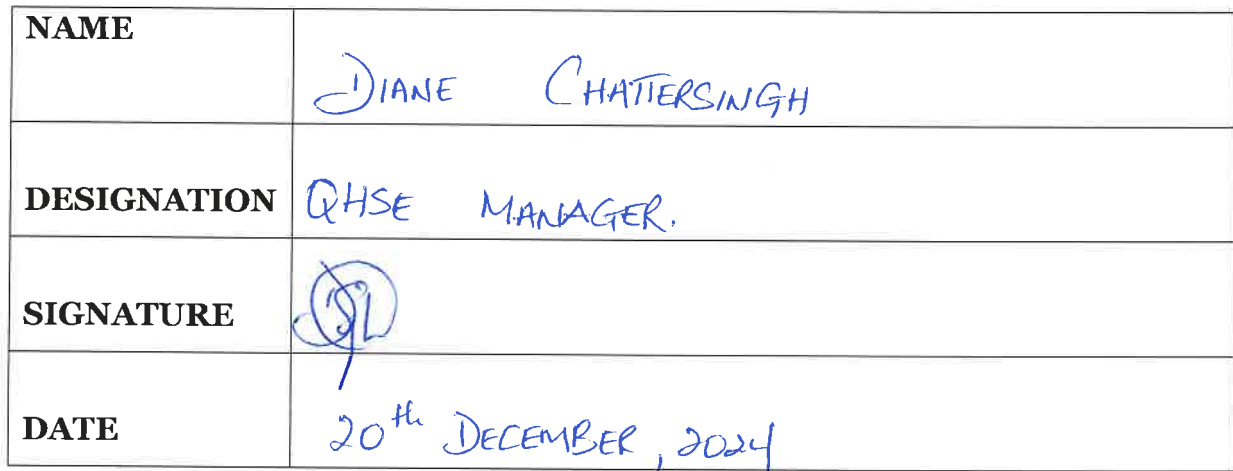 NAME
DIANE CHATTERSINGH
DESIGNATION QHSE MANAGER.
SIGNATURE
DATE 20th DECEMBER, 2024